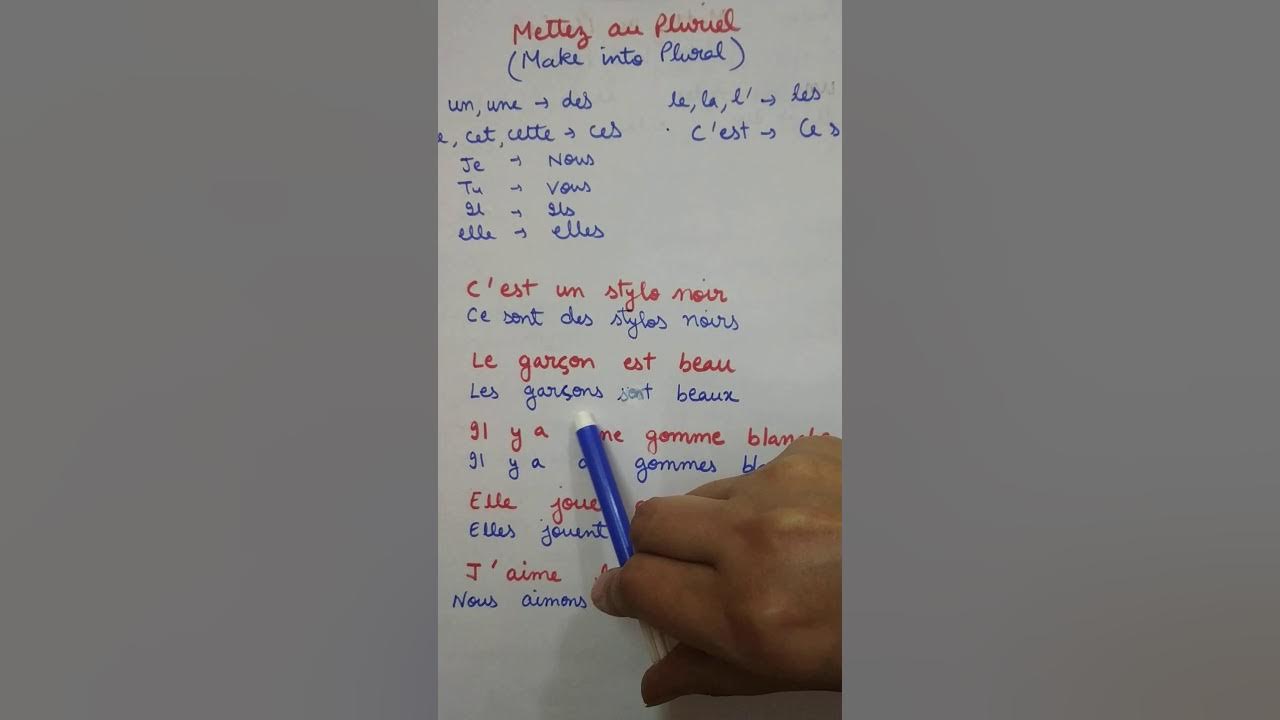 Mettez au Pluriel
(Make into Plural)
un, une → des le, la, l' → les
cet, cette → ces C'est → Ce
Je → Nous
Tu → Vous
Il → Ils
elle → elles
C'est un stylo noir
Ce sont des stylos noirs
Le garçon est beau
Les garçons sont beaux
Il y a gomme
Il y a gommes
Elle joue
Elles jouent
J'aime
Nous aimons